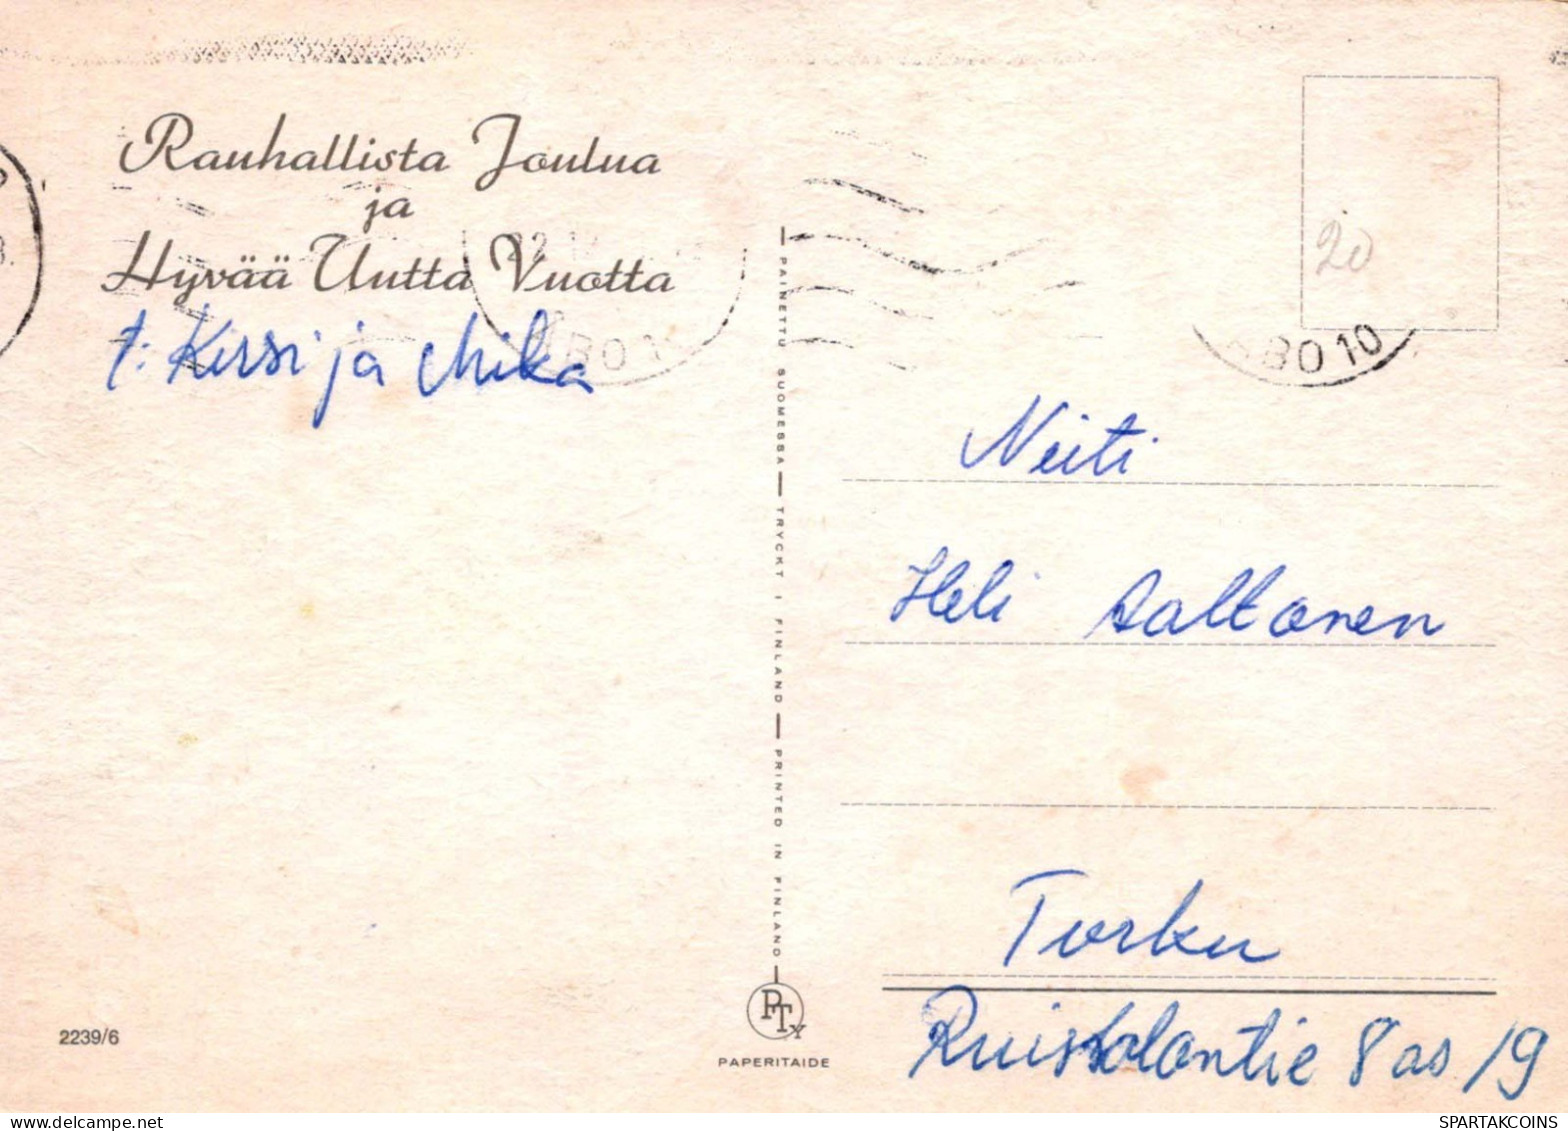 Rauhallista Joulua
ja
Hyvää Uutta Vuotta
t: Kirsi ja Mika
22 1
BO 1
BO 10
20
Neiti
Heli Aaltonen
Turku
Ruissalontie 8 as 19
PAINETTU SUOMESSA — TRYCKT I FINLAND — PRINTED IN FINLAND
PTY
PAPERITAIDE
2239/6
SPARTAKCOINS